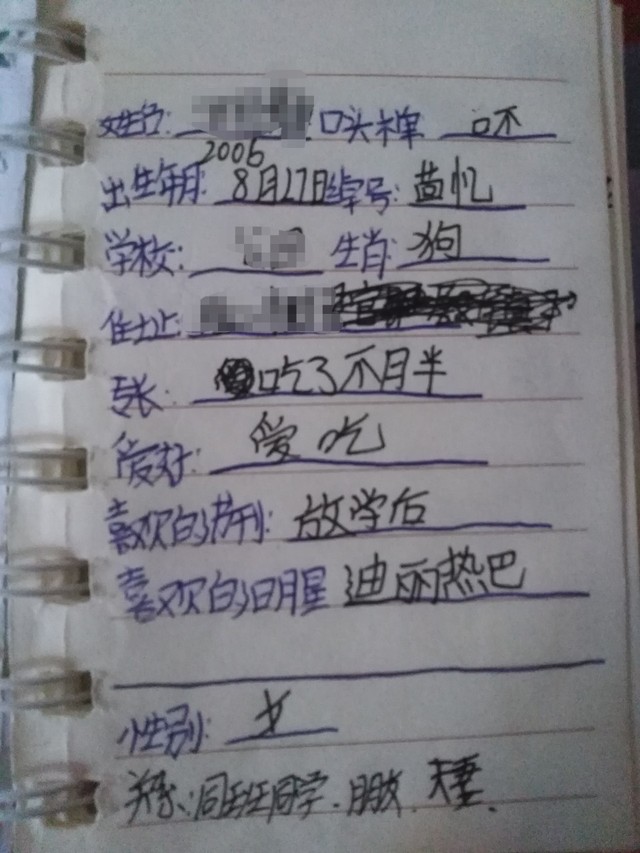 姓名: 口头禅 呸
2006
出生年月: 8月27日 绰号: 黄忆
学校: 生肖: 狗
住址:
专长: 吃了不月半
爱好: 爱吃
喜欢的节刊: 放学后
喜欢的明星 迪丽热巴
性别: 女
关系: 同班同学. 朋友. 夫妻.